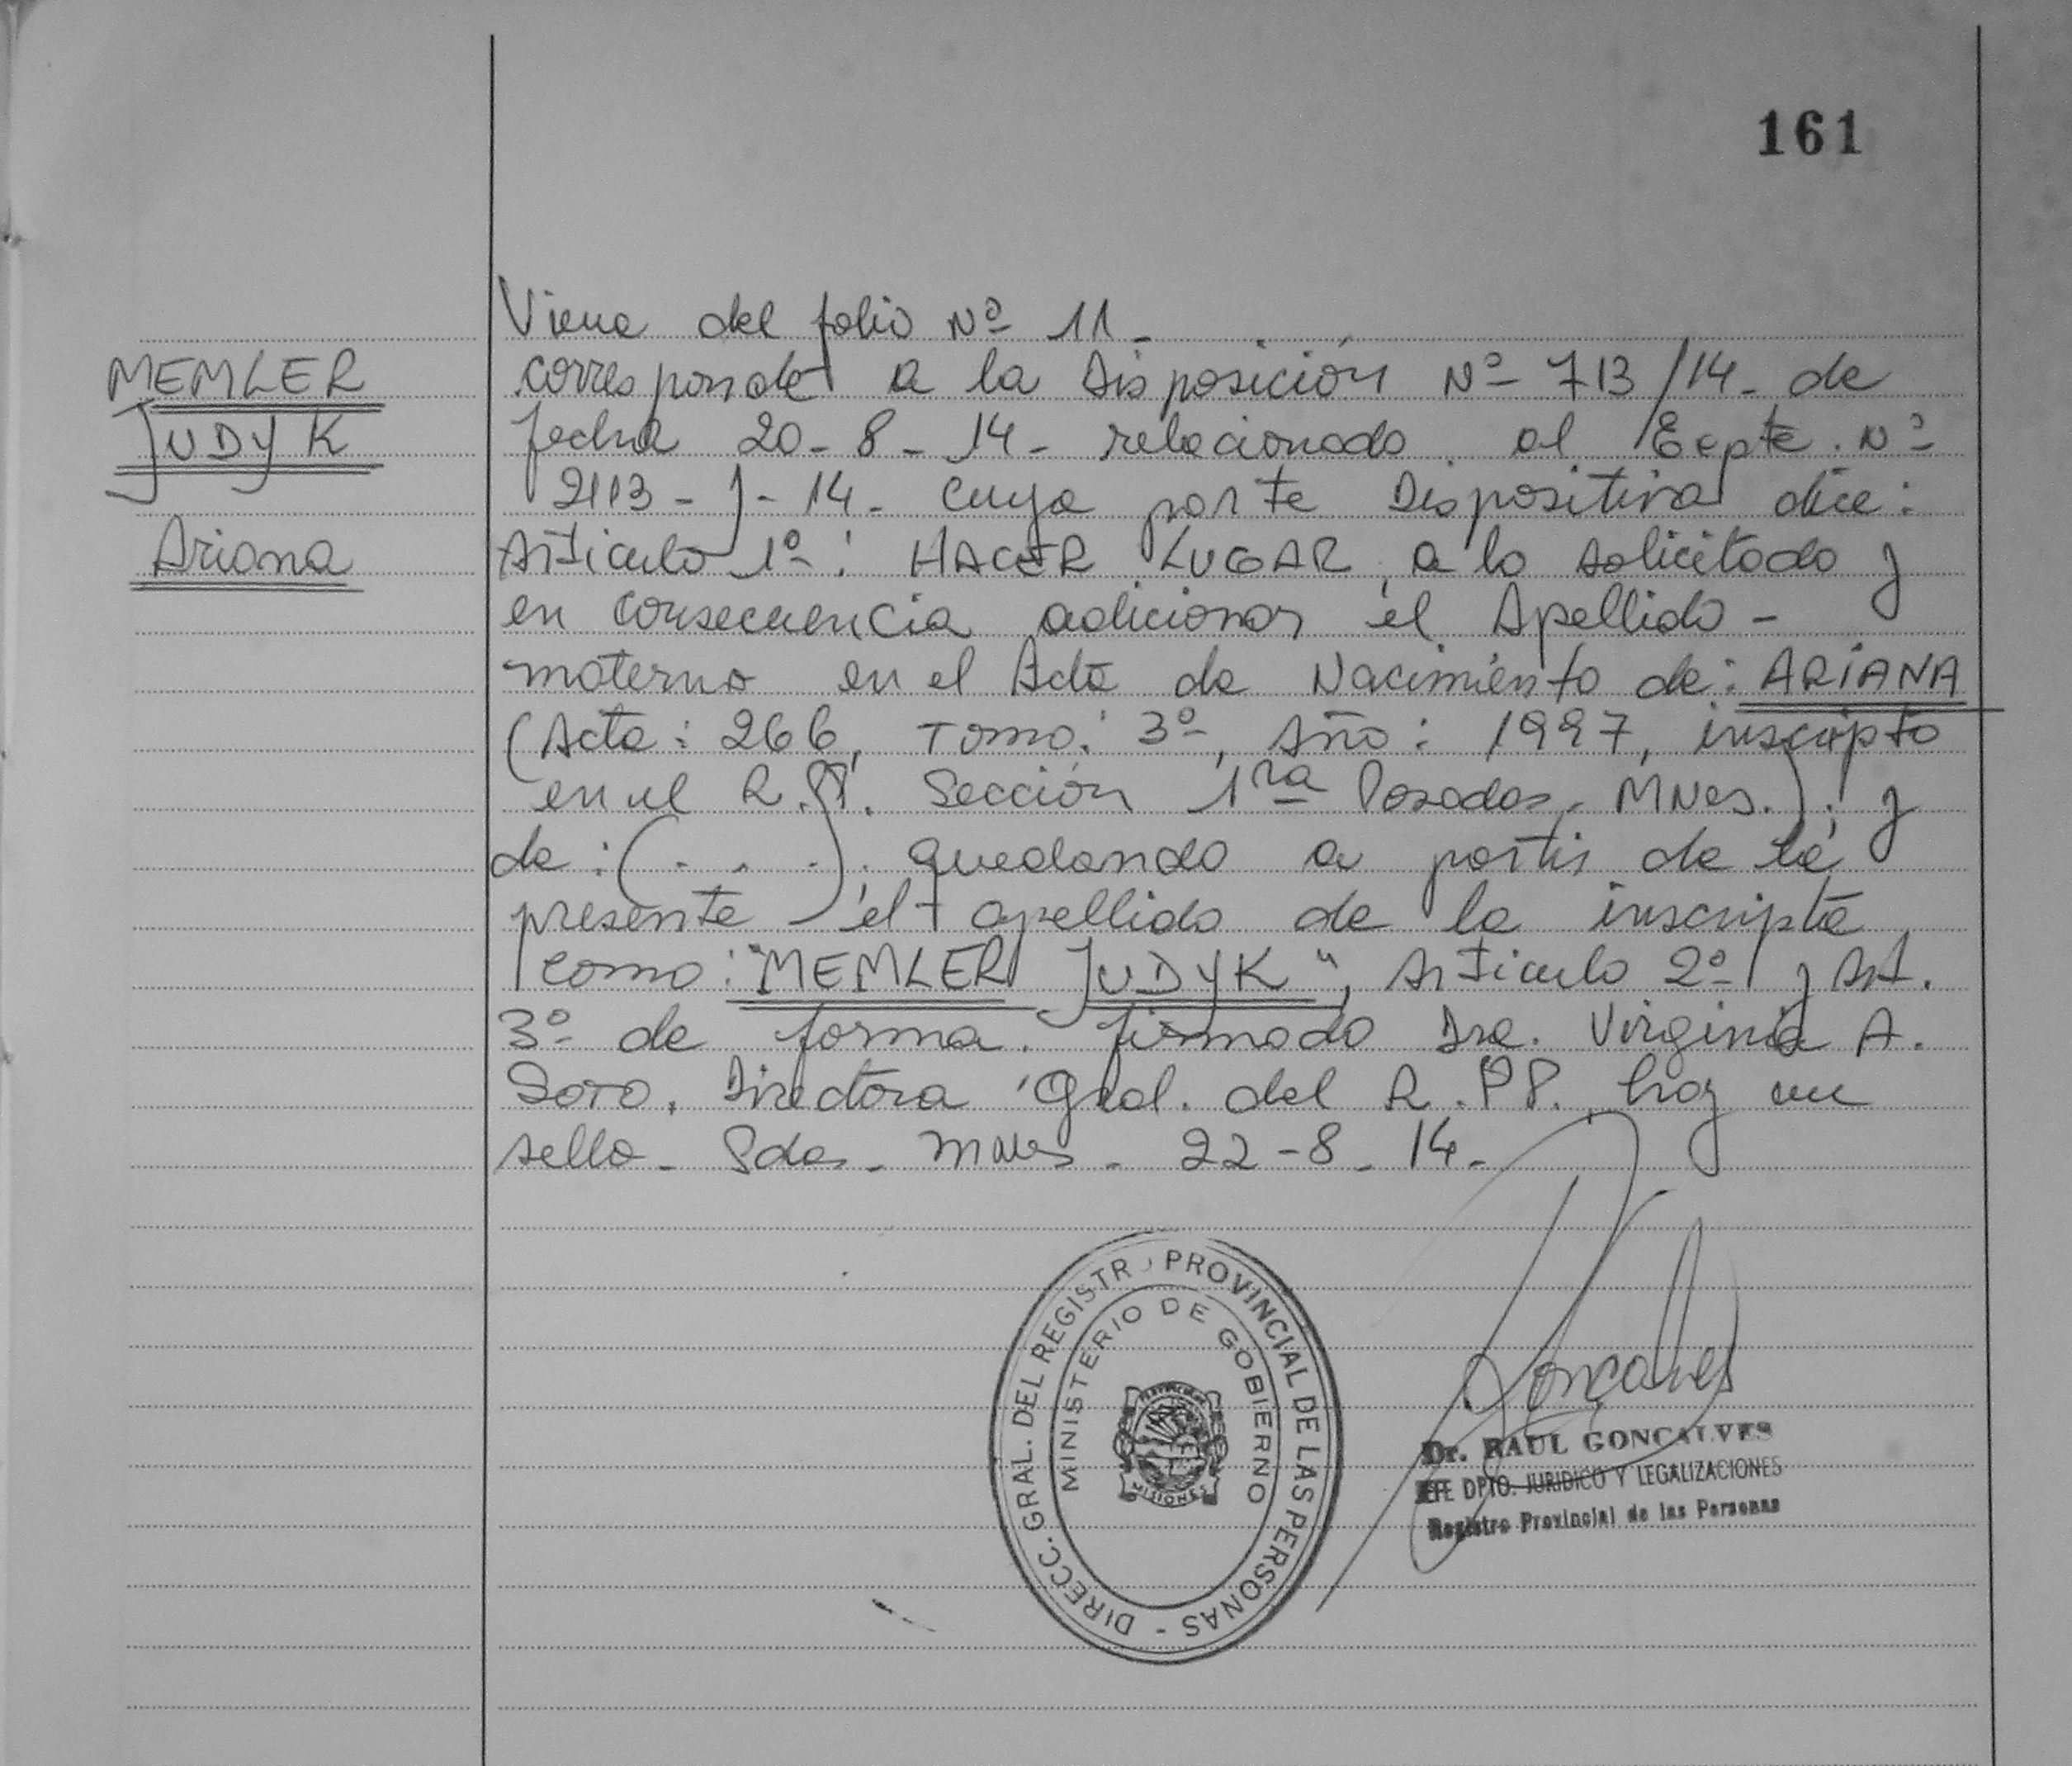 161
MEMLER
JUDYK
Ariana
Viene del folio Nº 11-
corresponde a la Disposición Nº 713/14- de
fecha 20-8-14- relacionado al Expte. Nº
2113-J-14- cuya parte Dispositiva dice:
Artículo 1º: HACER LUGAR a lo solicitado y
en consecuencia adicionar el Apellido-
materno en el Acta de Nacimiento de: ARIANA
(Acta: 266, Tomo: 3º, Año: 1997, inscripto
en el R.P. Sección 1ra Posadas, MNes.). y
de: (...). quedando a partir de la
presente el apellido de la inscripta
como: "MEMLER JUDYK", Artículo 2º y Art.
3º de forma. firmado Dra. Virginia A.
Soto. Directora Gral. del R.PP. hay un
sello- Pdas- mnes- 22-8-14-
DIRECC. GRAL. DEL REGISTRO PROVINCIAL DE LAS PERSONAS -
MINISTERIO DE GOBIERNO
MISIONES
Gonçalves
Dr. RAUL GONCALVES
JEFE DPTO. JURIDICO Y LEGALIZACIONES
Registro Provincial de las Personas